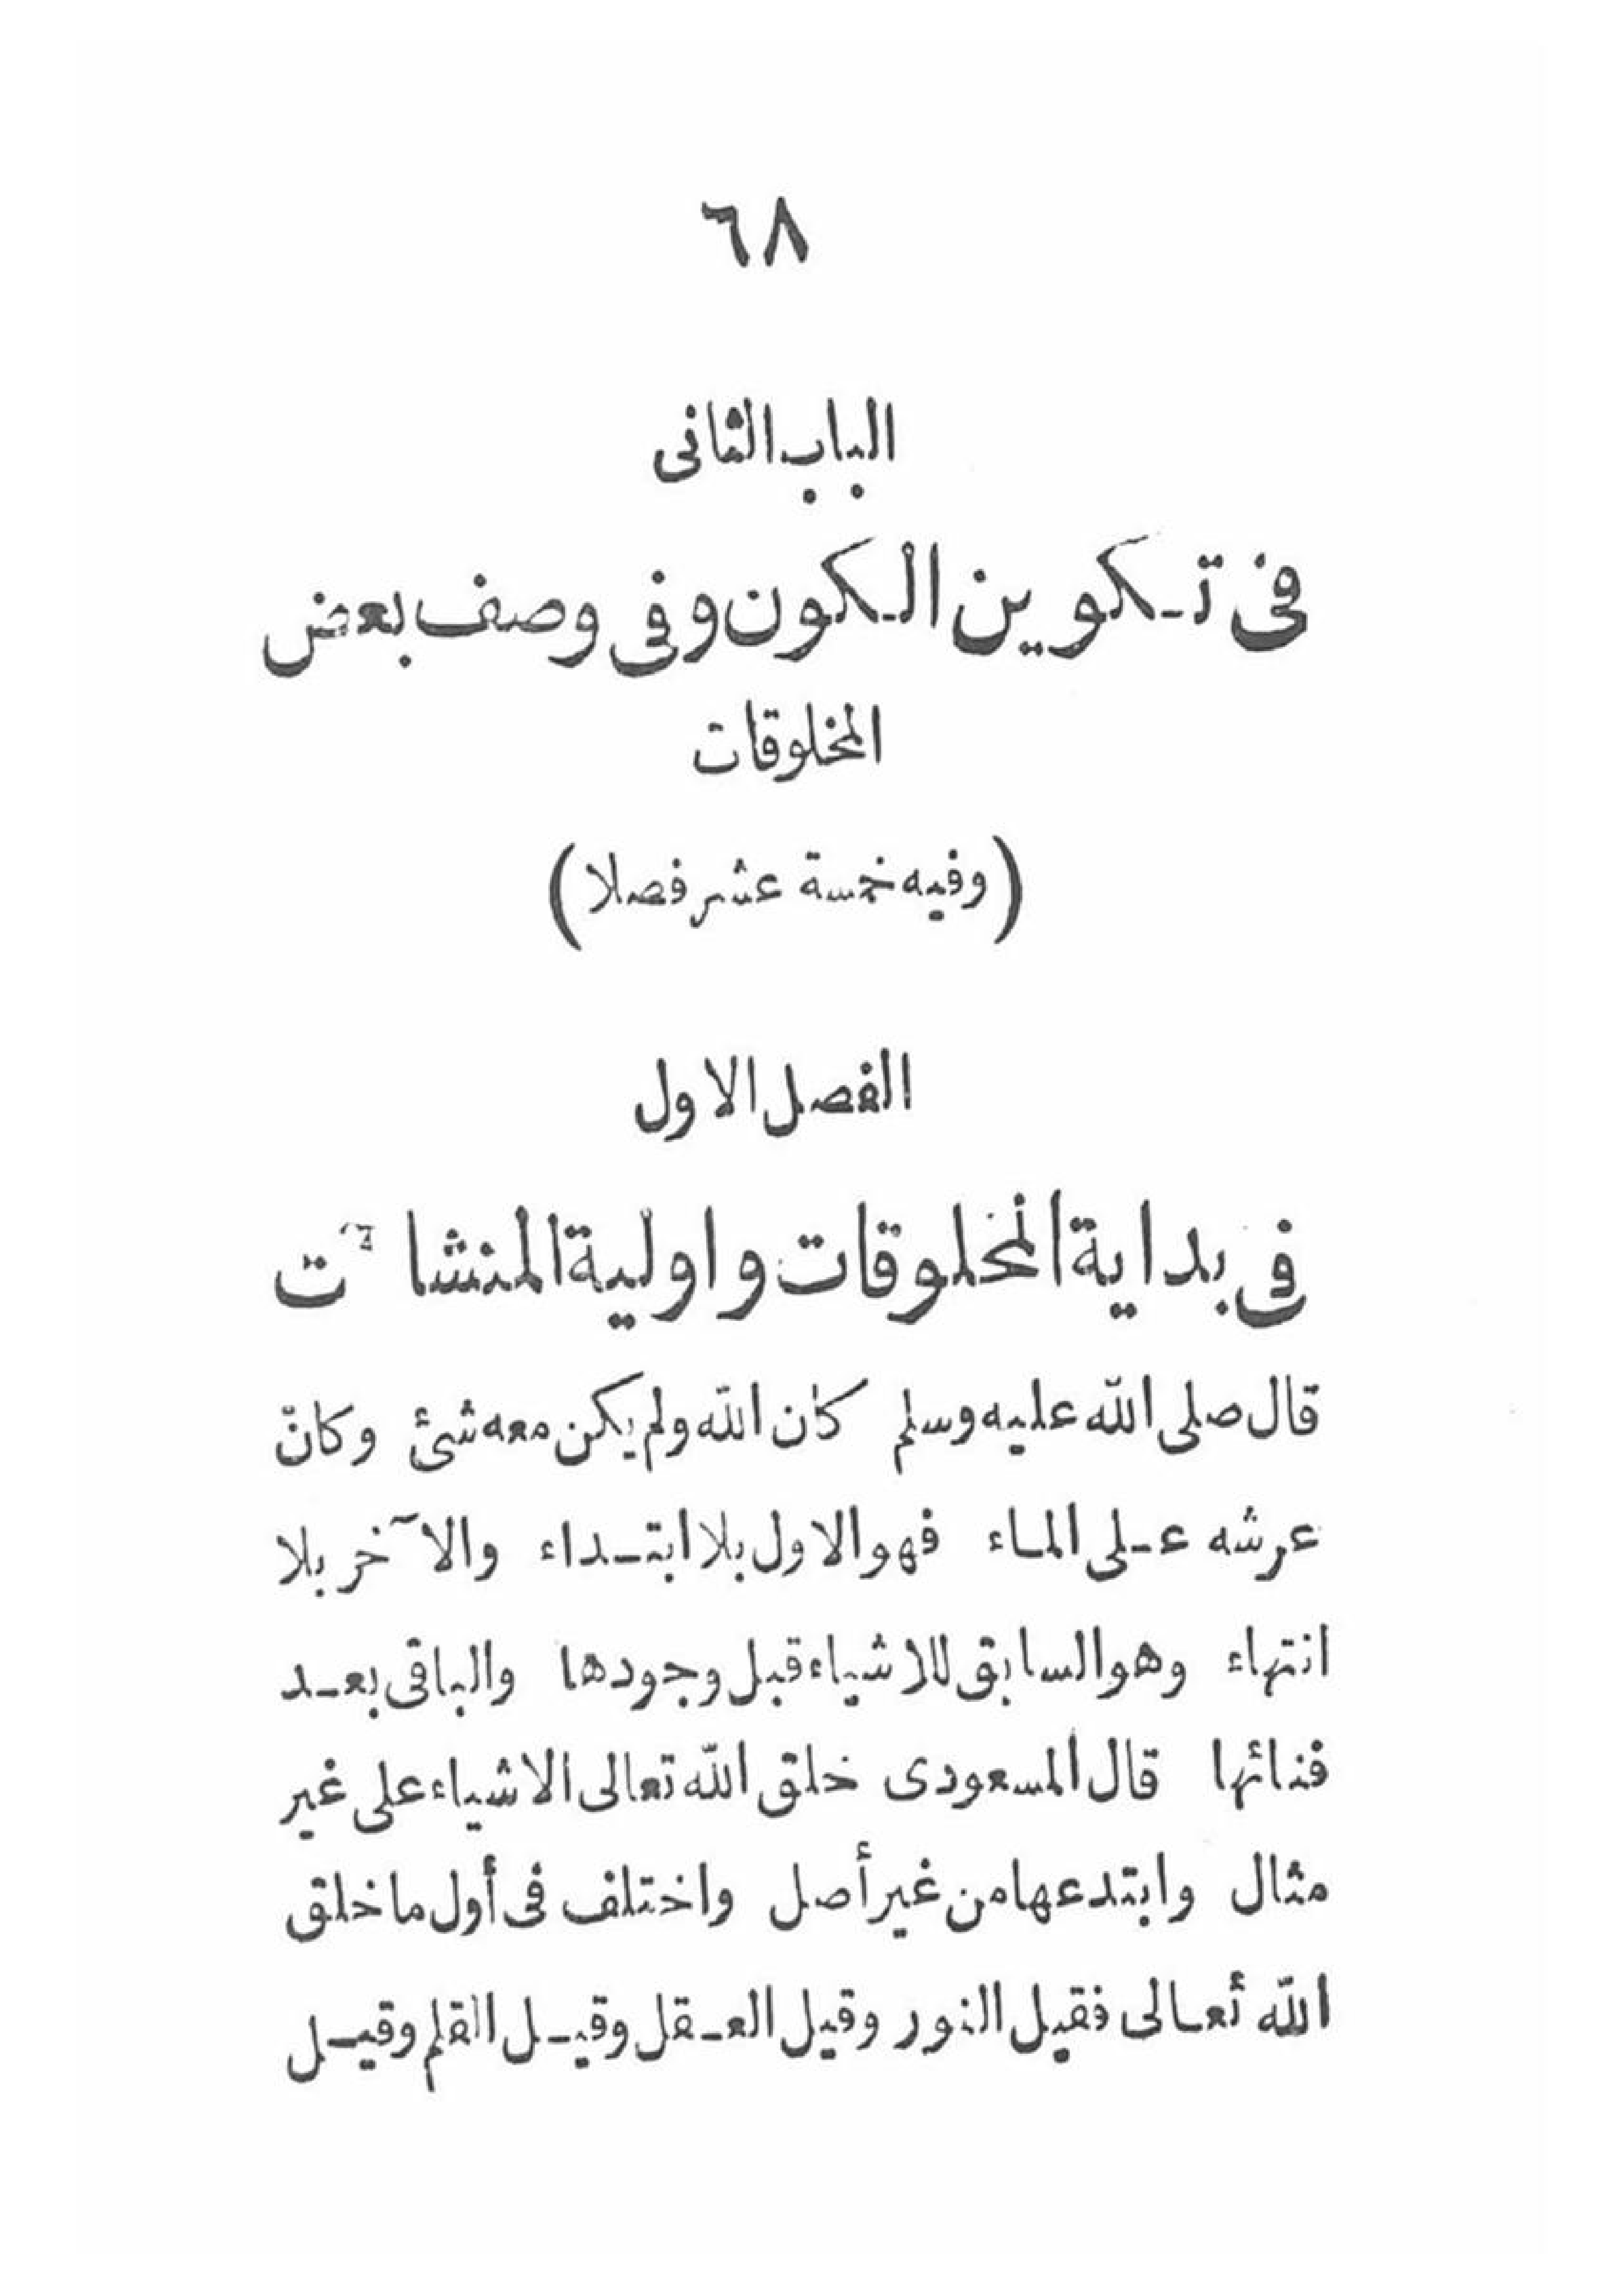 ٦٨
الباب الثانى
فى تكوين الكون وفى وصف بعض
المخلوقات
(وفيه خمسة عشر فصلا)
الفصل الاول
فى بداية المخلوقات واولية المنشآت
قال صلى الله عليه وسلم كان الله ولم يكن معه شئ وكان
عرشه على الماء فهو الاول بلا ابتداء والآخر بلا
انتهاء وهو السابق للاشياء قبل وجودها والباقى بعد
فنائها قال المسعودى خلق الله تعالى الاشياء على غير
مثال وابتدعها من غير أصل واختلف فى أول ما خلق
الله تعالى فقيل النور وقيل العقل وقيل القلم وقيل